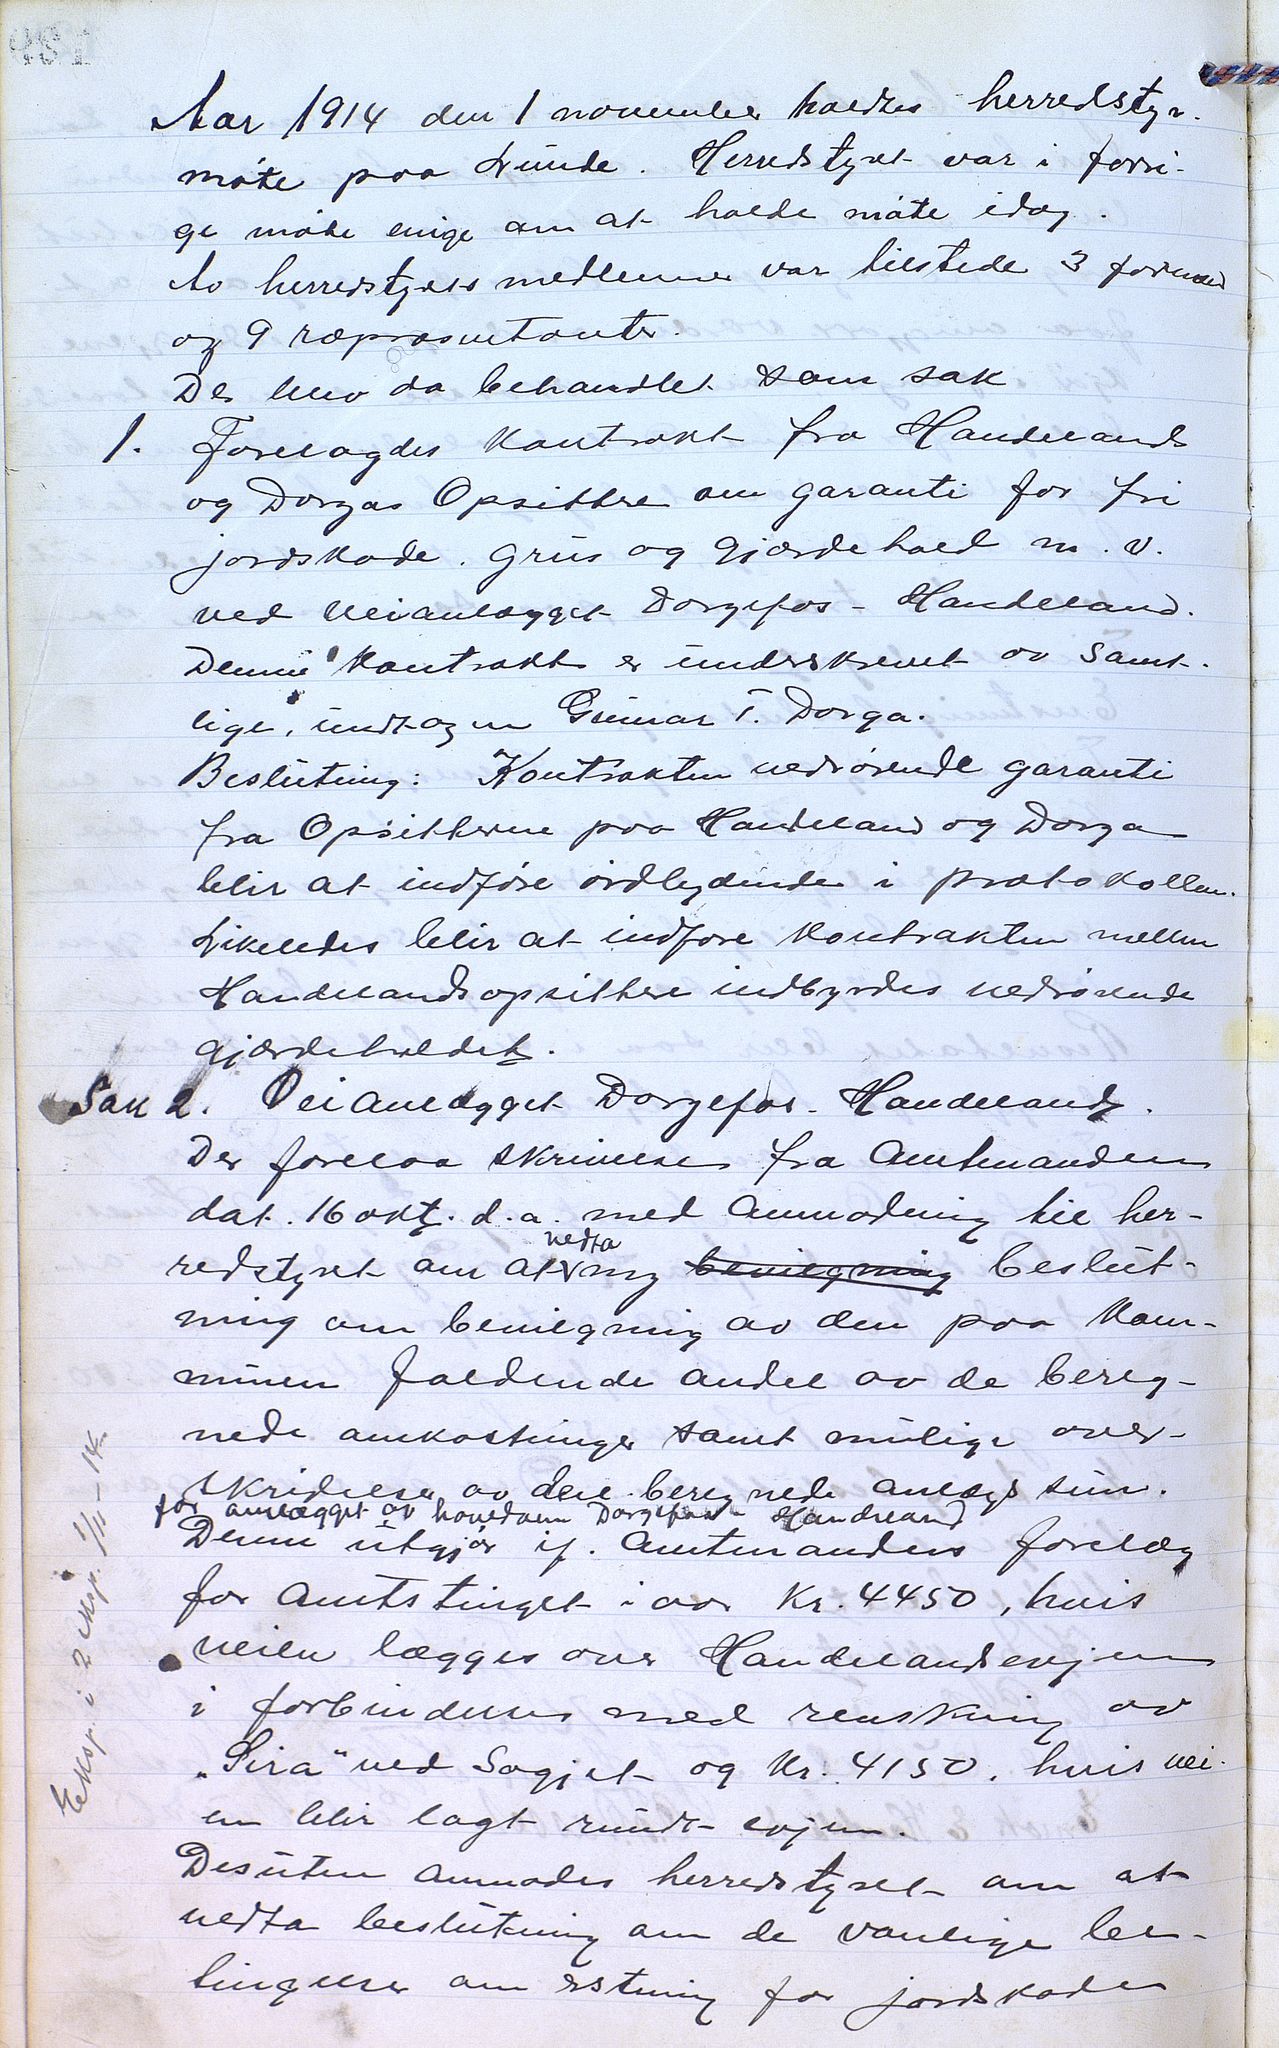 Aar 1914 den 1 november holdtes herredsty-
møte paa Lunde. Herredstyret var i forri-
ge møte enige om at holde møte idag.
Av herredstyrets medlemmer var tilstede 3 formænd
og 9 repræsentanter.
Der blev da behandlet som sak
1. Forelagdes kontrakt fra Handelands
og Dorgas Opsittere om garanti for fri
jordskade. grus og gjærdehold m. v.
ved veianlægget Dorgefos - Handeland.
Denne kontrakt er underskrevet av samt-
lige, undtagen Gunnar T. Dorga.
Beslutning: Kontrakten vedrørende garanti
fra Opsitterne paa Handeland og Dorga
blir at indføre ordlydende i protokollen.
Likeledes blir at indføre kontrakten mellem
Handelandsopsittere indbyrdes vedrørende
gjærdeholdet.
Sak 2. Veianlægget Dorgefos - Handeland.
Der forelaa skrivelse fra Amtmanden
dat. 16 okt. d. a. med Anmodning til her-
vedta
redstyret om at ny bevilgning beslut-
ning om bevilgning av den paa kom-
munen faldende andel av de bereg-
nede omkostninger samt mulige over-
skridelser av den beregnede anlægssum.
for anlægget av hoveddelen Dorgefos - Handeland
Denne utgjør if. Amtmandens forelæg
for amtstinget i aar Kr. 4450, hvis
veien lægges over Handelandsevjen
i forbindelse med renskning av
"Sira" ved Sagjet og Kr. 4150, hvis vei-
en blir lagt rundt evjen.
Desuten anmodes herredstyret om at
vedta beslutning om de vanlige be-
tingelser om erstning for jordskade
Eksp. i 2 eksp. 1/11-14